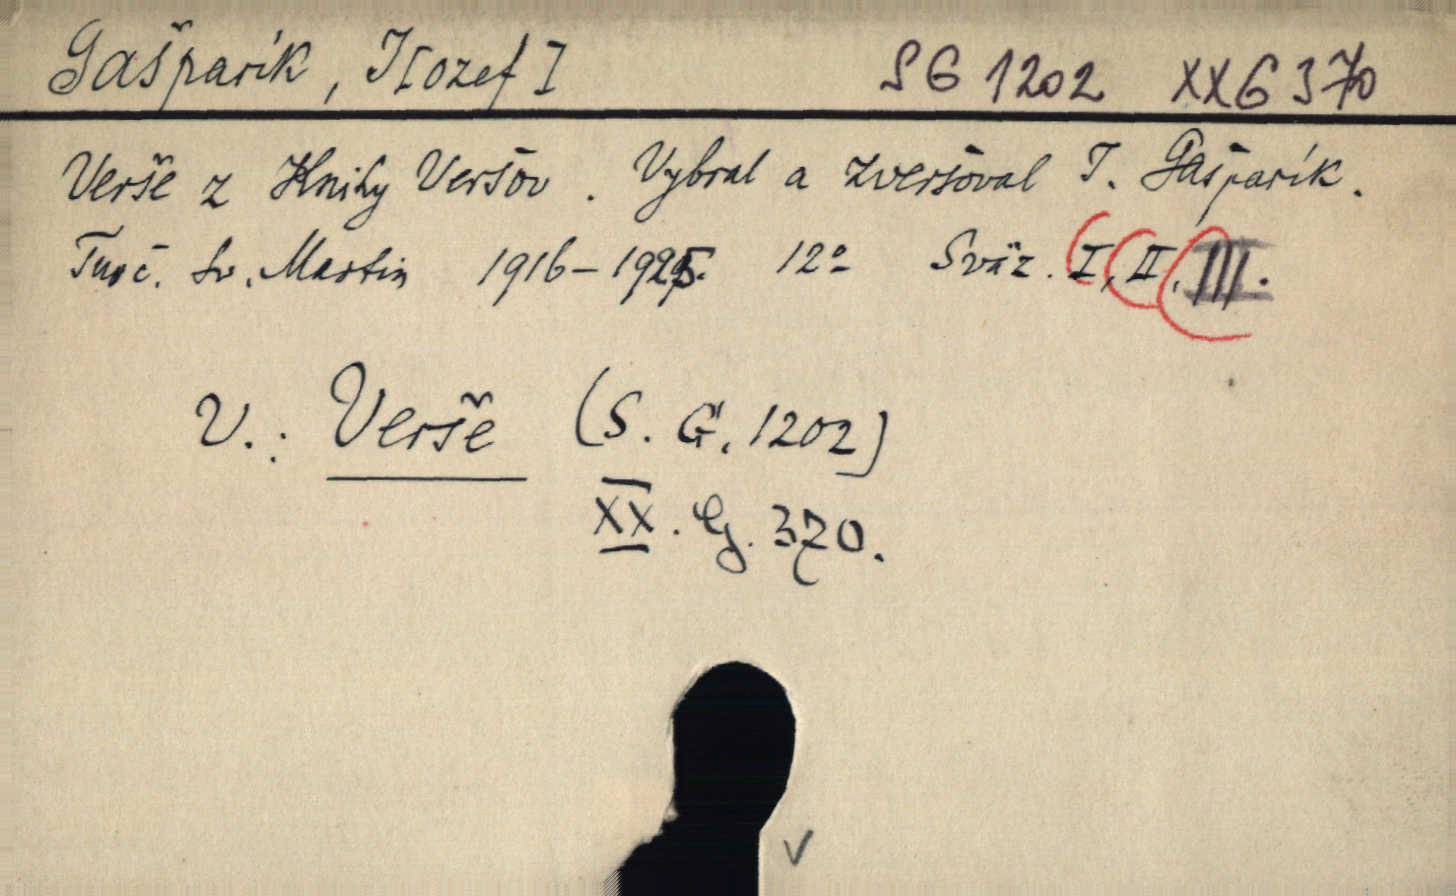 Gašparík, J[ozef] SG 1202 XXG 370
Verše z Knihy Veršov. Vybral a zveršoval J. Gašparík.
Turč. Sv. Martin 1916-1925. 12° Sväz. I, II, III.
V.: Verše (S. G. 1202)
XX. G. 370.